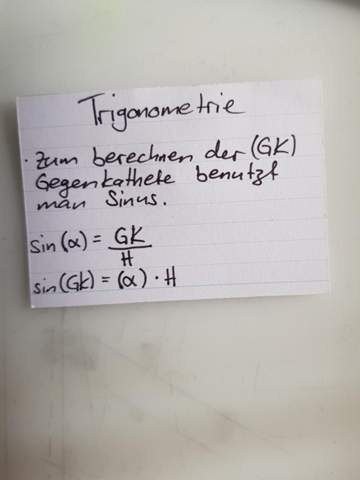 Trigonometrie
· Zum berechnen der (GK)
Gegenkathete benutzt
man Sinus.
sin(α) = GK/H
sin(GK) = (α) · H